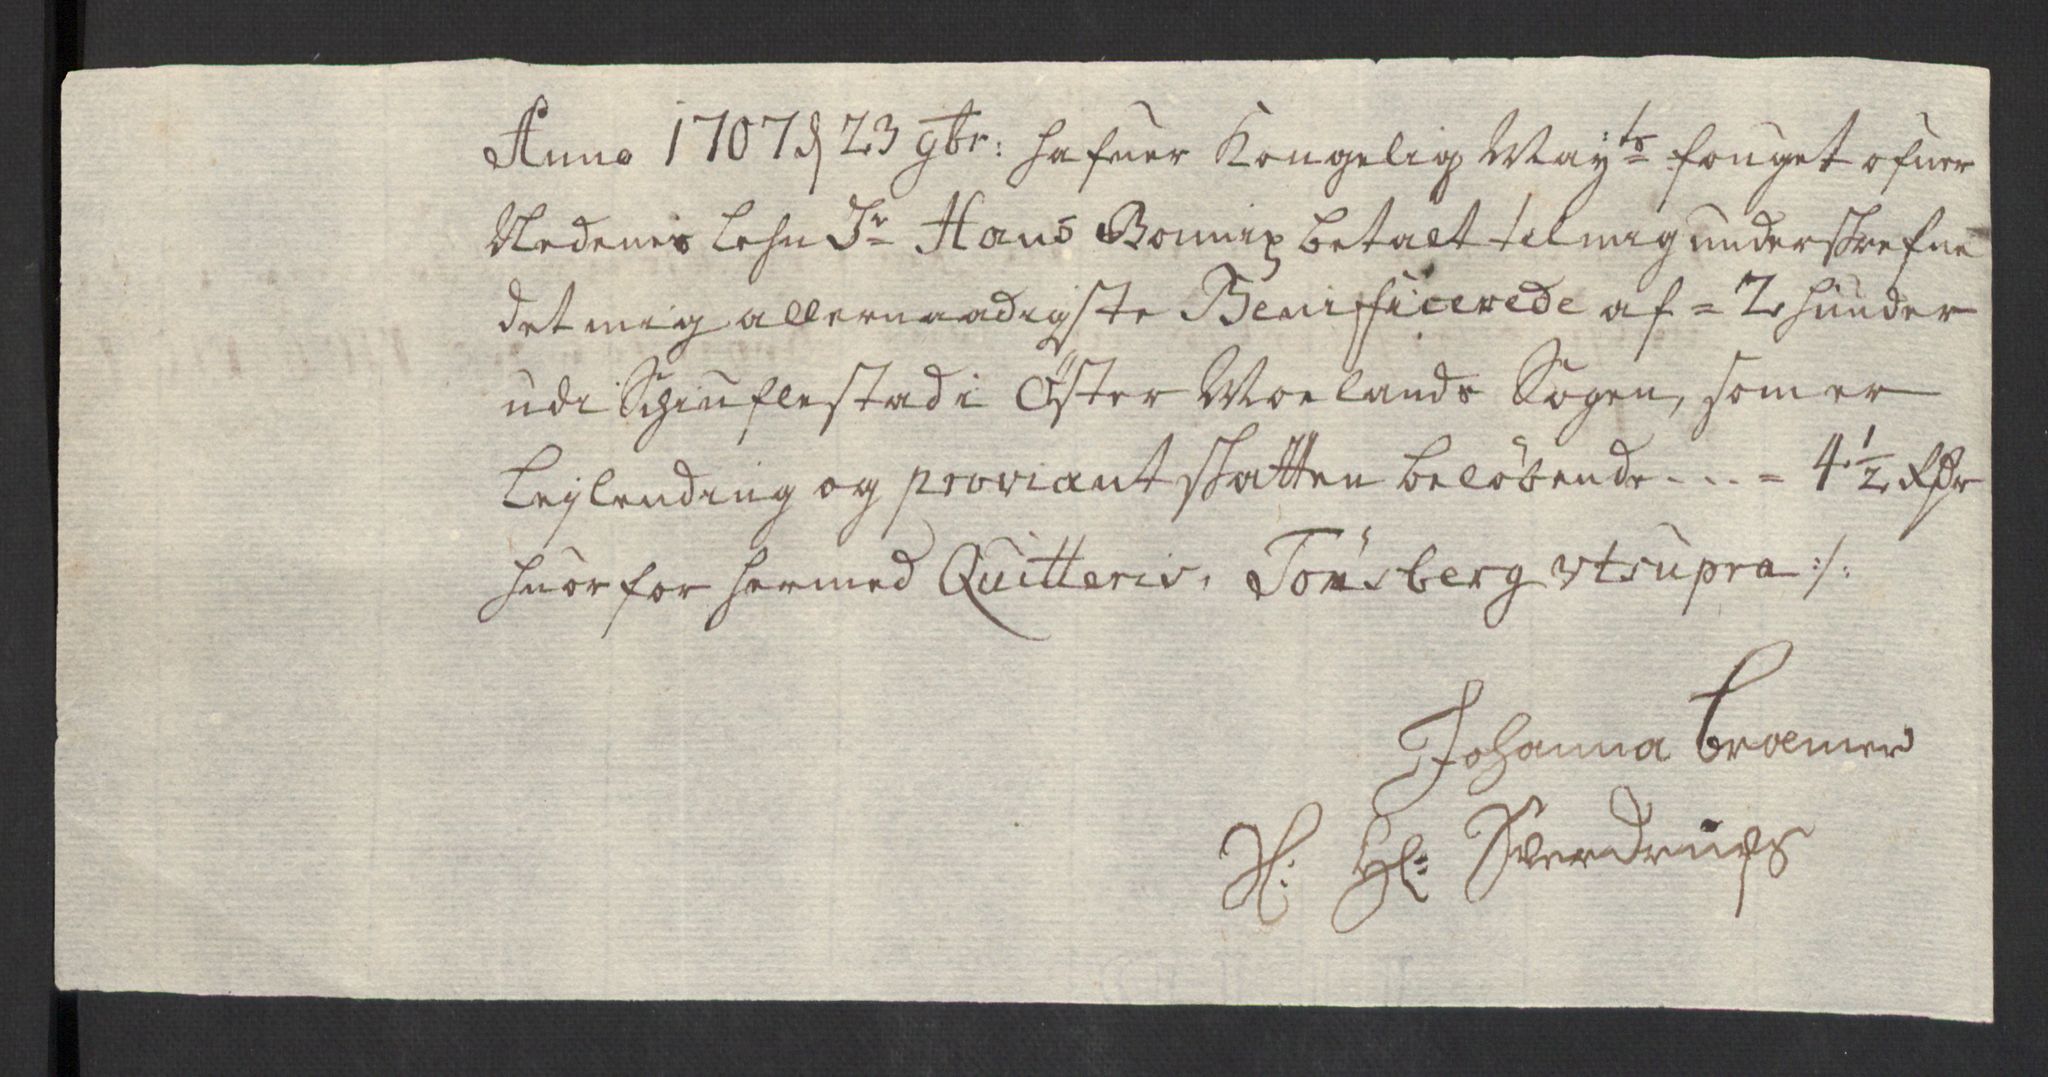 Anno 1707 d 23 9br: hafuer Kongelig May:ts fouget ofuer
Nedenes Lehn Sr Hans Bonnix betalt til mig underskrefne
det mig allernaadigste Beneficerede af = 2 hunder
udi Schiuflestad i Öster Moelands Sogen, som er
Leylending og proviant skatten beløbende - - - = 4 1/2 Rdr
huorfor hermed Quitteris, Tønsberg vt supra :/:
Johanna Croemer
Sl. Hl: Sverdrups